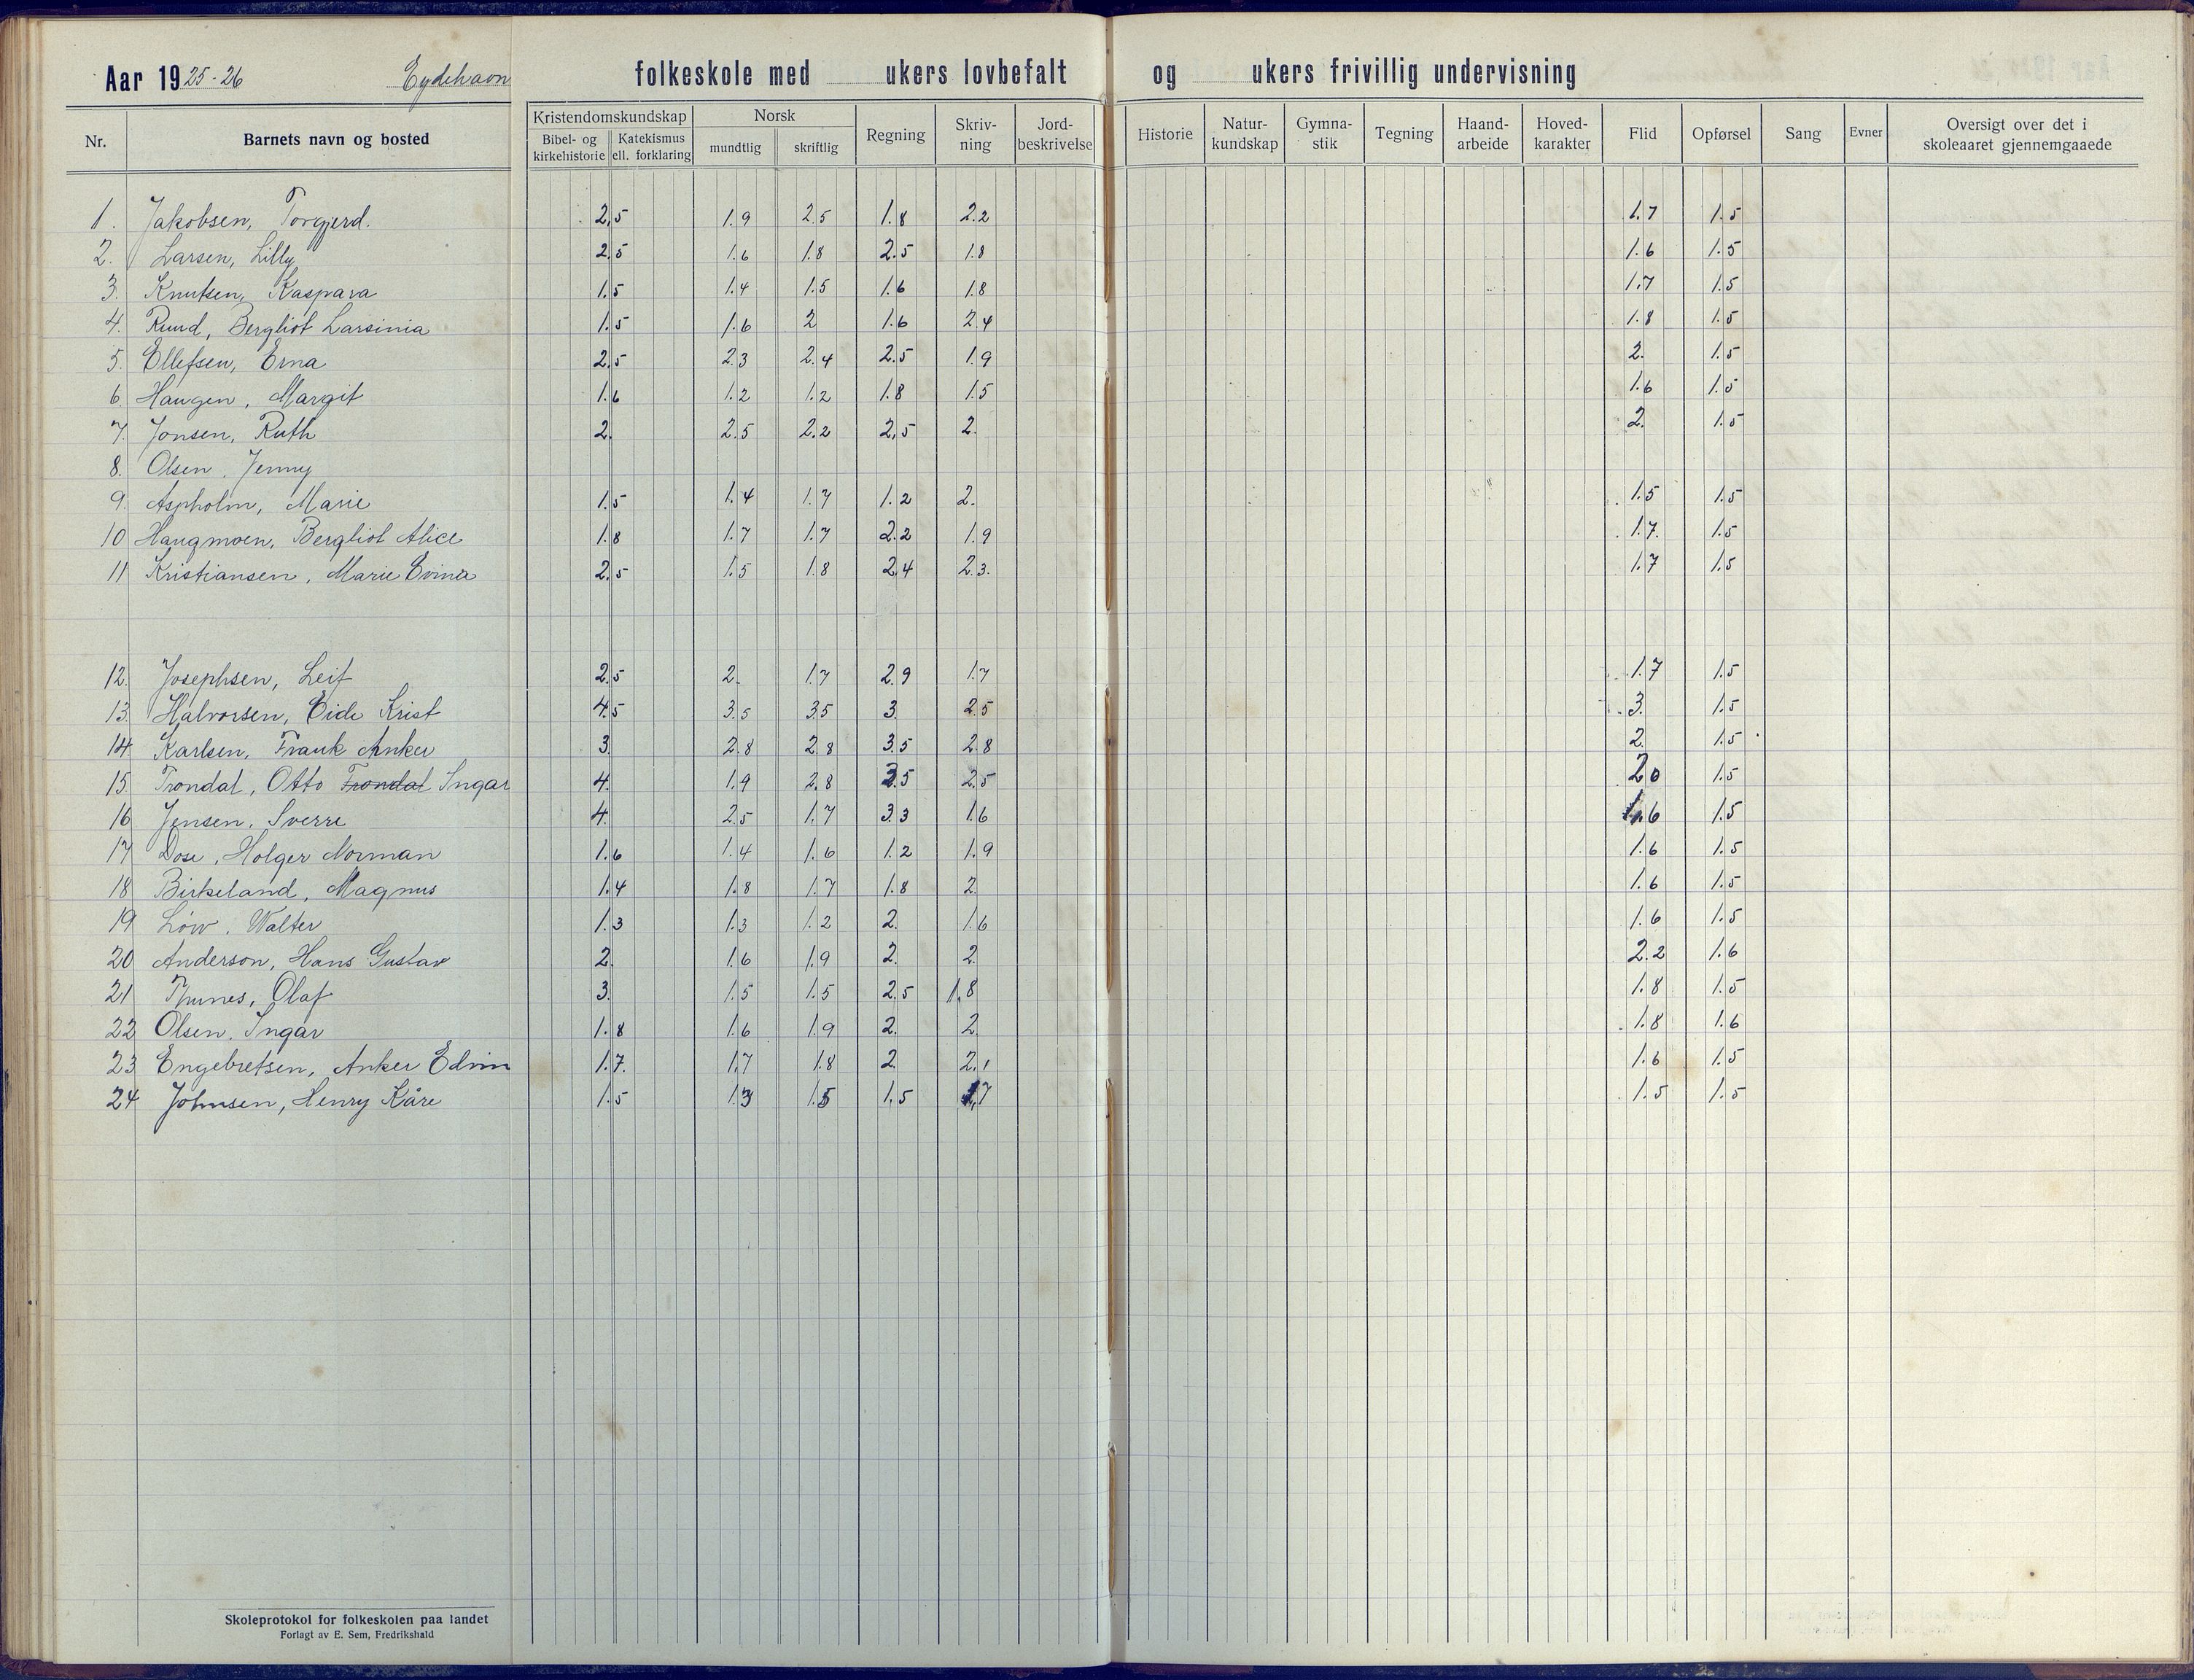 Aar 1925-26 Eydehavn folkeskole med ukers lovbefalt og ukers frivillig undervisning
Nr. Barnets navn og bosted Kristendomskundskap Bibel- og kirkehistorie Katekismus ell. forklaring Norsk mundtlig skriftlig Regning Skriv-ning Jord-beskrivelse Historie Natur-kundskap Gymna-stik Tegning Haand-arbeide Hoved-karakter Flid Opførsel Sang Evner Oversigt over det i skoleaaret gjennemgaaede
1. Jakobsen, Torgjerd. 2,5 1.9 2.5 1.8 2.2 1.7 1.5
2. Larsen, Lilly 2.5 1.6 1.8 2.5 1.8 1.6 1.5
3. Knutsen, Kaspara 1.5 1.4 1.5 1.6 1.8 1.7 1.5
4. Ruud, Bergliot Larsinia 1.5 1.6 2 1.6 2.4 1.8 1.5
5. Ellefsen, Erna 2.5 2.3 2.4 2.5 1.9 2. 1.5
6. Haugen, Margit 1.6 1.2 1.2 1.8 1.5 1.6 1.5
7. Jonsen, Ruth 2. 2.5 2.2 2,5 2. 2. 1.5
8. Olsen, Jenny
9. Aspholm, Marie 1.5 1.4 1.7 1.2 2. 1.5 1.5
10 Haugmoen, Bergliot Alice 1.8 1.7 1.7 2.2 1.9 1.7. 1.5
11 Kristiansen, Marie Evina 2.5 1.5 1.8 2.4 2.3. 1.7 1.5
12. Josephsen, Leif 2.5 2. 1.7 2.9 1.7 1.7 1.5
13. Halvorsen, Eide Krist 4.5 3.5 3.5 3. 2.5 3. 1.5
14. Karlsen, Frank Anker 3. 2.8 2.8 3.5 2.8 2. 1.5
15. Trondal, Otto Trondal Ingar 4. 1.9 2.8 3.5 2.5 2.0 1.5
16 Jensen, Sverre 4. 2.5 1.7 3.3 1.6 1.6 1.5
17 Dose, Holger Norman 1.6 1.4 1.6 1.2 1.9 1.6 1.5
18 Birkeland, Magnus 1.4 1.8 1.7 1.8 2. 1.6 1.5
19 Löw, Walter 1.3 1.3 1.2 2. 1.6 1.6 1.5
20 Anderson, Hans Gustav 2. 1.6 1.9 2. 2. 2.2 1.6
21 Thunes, Olaf 3. 1.5 1.5 2.5 1.8 1.8 1.5
22 Olsen, Ingar 1.8 1.6 1.9 2. 2. 1.8 1.6
23 Engebretsen, Anker Edvin 1.7. 1.7 1.8 2. 2.1 1.6 1.5
24 Johnsen, Henry Kåre 1.5 1.3 1.5 1.5 1.7 1.5 1.5
Skoleprotokol for folkeskolen paa landet
Forlagt av E. Sem, Fredrikshald